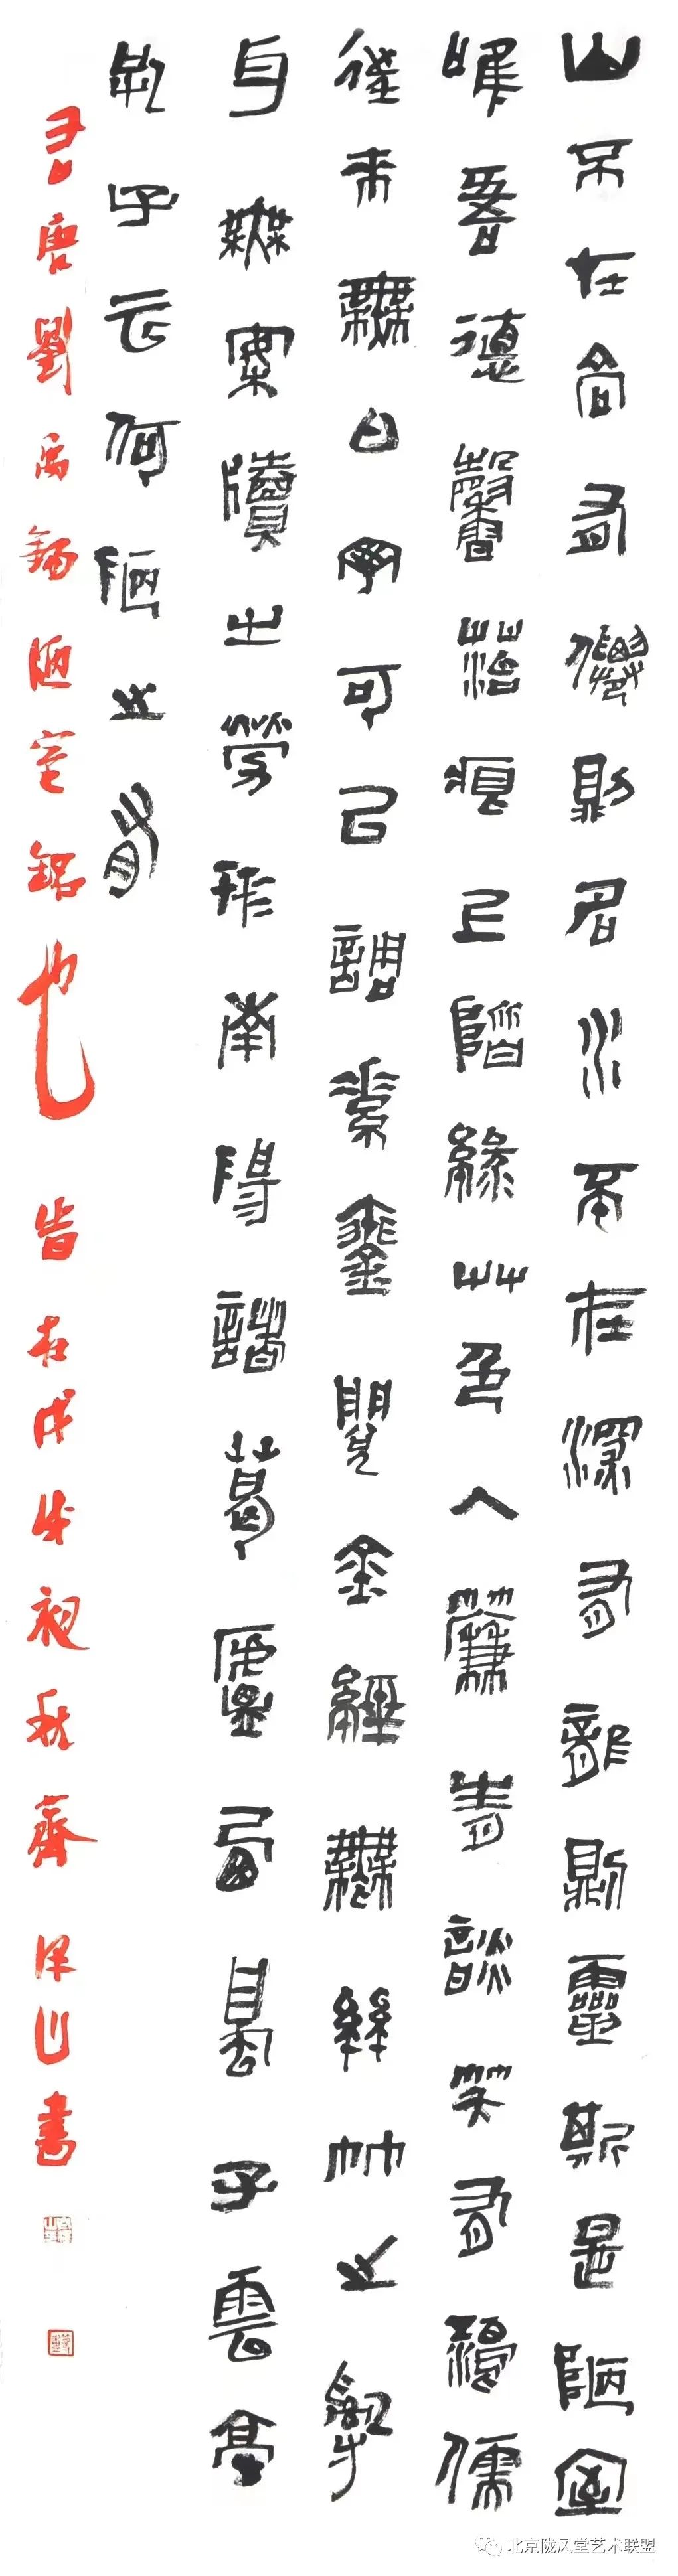 山不在高有僊則名水不在深有龍則靈斯是陋室
唯吾德馨苔痕上階緑艸色入簾青談笑有鴻儒
往來無白丁可以調素琴閱金經無絲竹之亂
耳無案牘之勞形南陽諸葛廬西蜀子雲亭
孔子云何陋之有
右唐劉禹錫陋室銘也 旹在戊戌 秋齋 山書
北京陇风堂艺术联盟